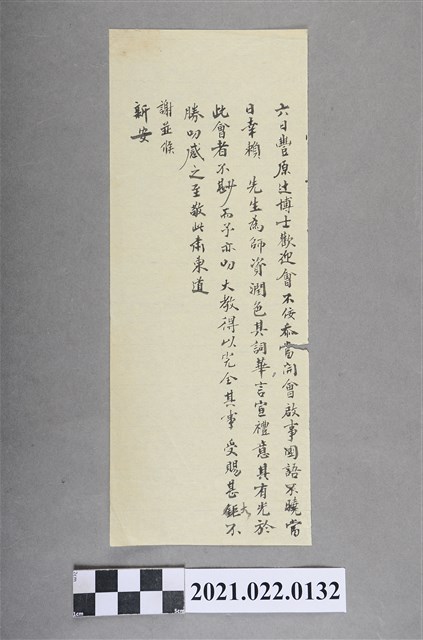 六日豐原辻博士歡迎會不佞忝當開會啟事國語不曉當
日幸賴 先生為師資潤色其詞華言宣禮意其有光於
此會者不尠而予亦叨大教得以完全其事受賜甚鉅大不
勝叨感之至敬此肅柬道
謝並候
新安
1cm
5cm
2021.022.0132